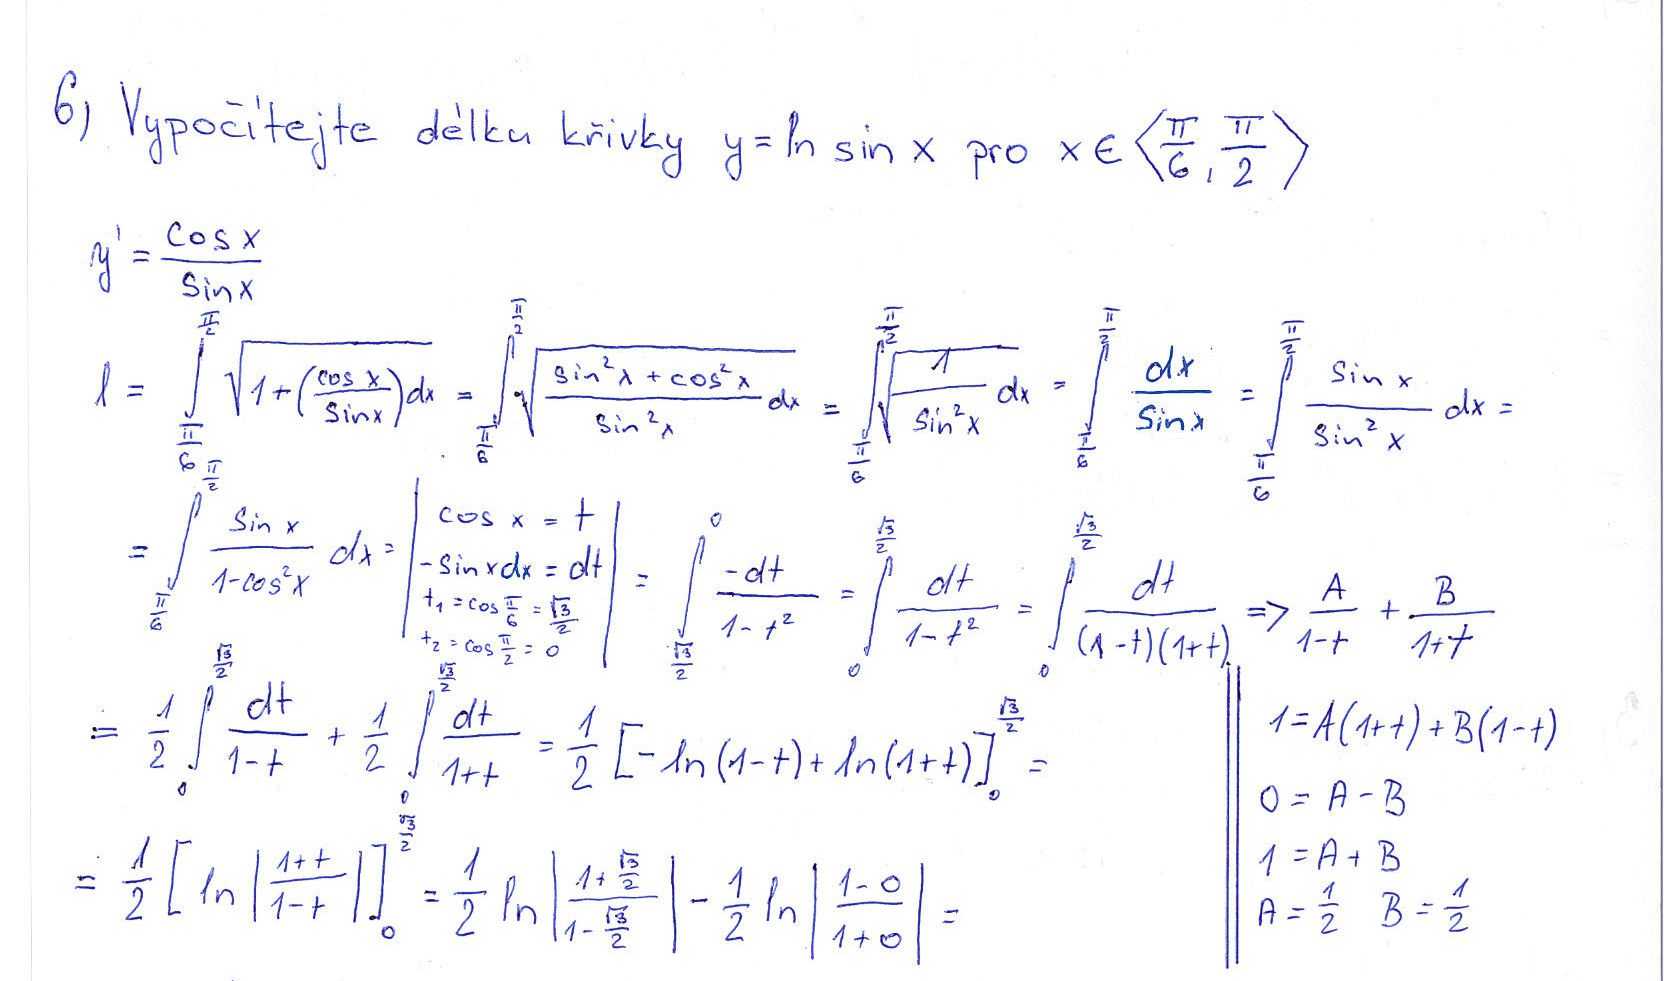 6) Vypočítejte délku křivky y = ln sin x pro x ∈ ⟨π/6, π/2⟩
y' = cos x / sin x
l = ∫_{π/6}^{π/2} √(1 + (cos x / sin x)) dx = ∫_{π/6}^{π/2} √((sin²x + cos²x) / sin²x) dx = ∫_{π/6}^{π/2} √(1 / sin²x) dx = ∫_{π/6}^{π/2} dx / sin x = ∫_{π/6}^{π/2} sin x / sin²x dx =
= ∫_{π/6}^{π/2} sin x / (1 - cos²x) dx = | cos x = t | -sin x dx = dt | t₁ = cos π/6 = √3/2 | t₂ = cos π/2 = 0 | = ∫_{√3/2}^{0} -dt / (1 - t²) = ∫_{0}^{√3/2} dt / (1 - t²) = ∫_{0}^{√3/2} dt / ((1 - t)(1 + t)) => A / (1 - t) + B / (1 + t)
= 1/2 ∫_{0}^{√3/2} dt / (1 - t) + 1/2 ∫_{0}^{√3/2} dt / (1 + t) = 1/2 [-ln(1 - t) + ln(1 + t)]_{0}^{√3/2} =
= 1/2 [ln |(1 + t) / (1 - t)|]_{0}^{√3/2} = 1/2 ln |(1 + √3/2) / (1 - √3/2)| - 1/2 ln |(1 - 0) / (1 + 0)| =
1 = A(1 + t) + B(1 - t)
0 = A - B
1 = A + B
A = 1/2 B = 1/2